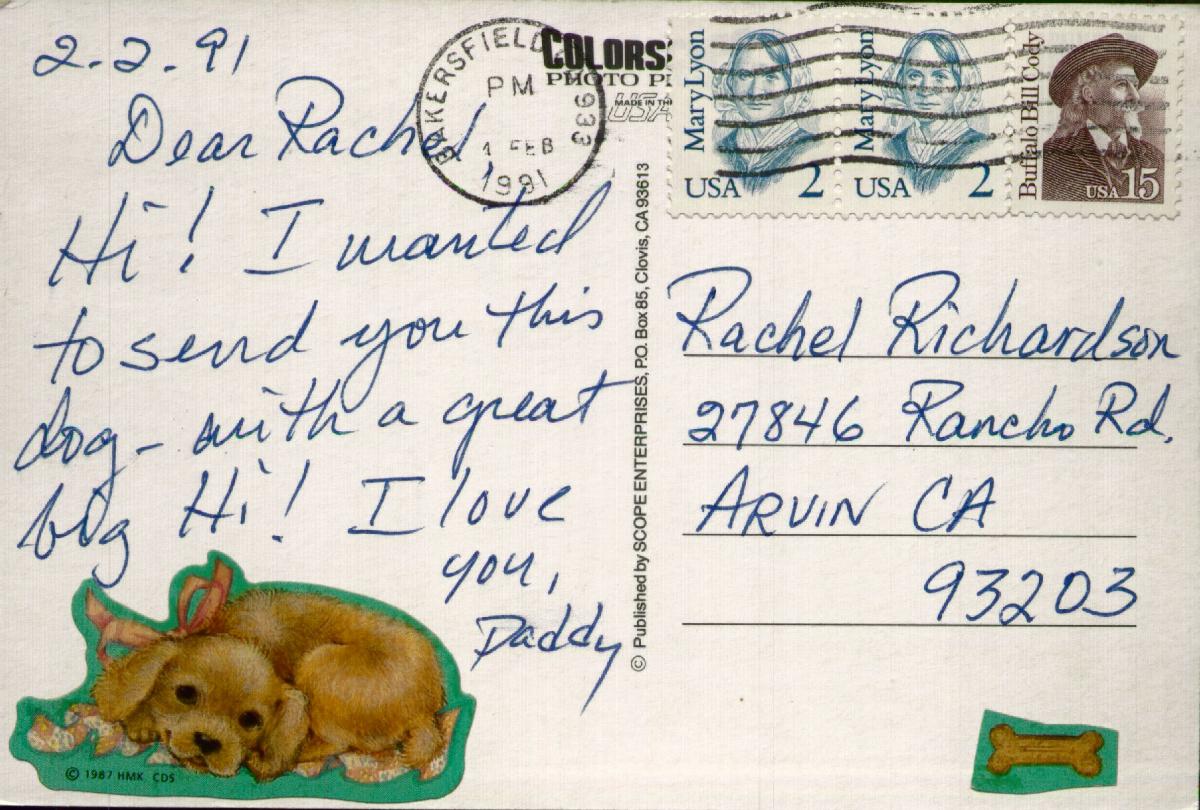 2.2.91
Dear Rachel,
Hi! I wanted
to send you this
dog - with a great
big Hi! I love
you,
Daddy
© 1987 HMK CDS
BAKERSFIELD
PM
1 FEB
1991
933
COLORS
PHOTO
MADE IN TH
USA
© Published by SCOPE ENTERPRISES, P.O. Box 85, Clovis, CA 93613
Mary Lyon
USA 2
Mary Lyon
USA 2
Buffalo Bill Cody
USA 15
Rachel Richardson
27846 Rancho Rd.
ARVIN CA
93203